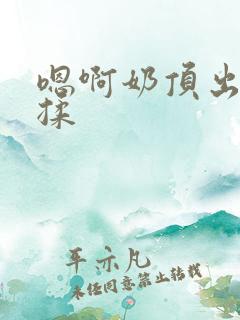 嗯啊奶頂出
揉
平亦凡
未经同意禁止转载